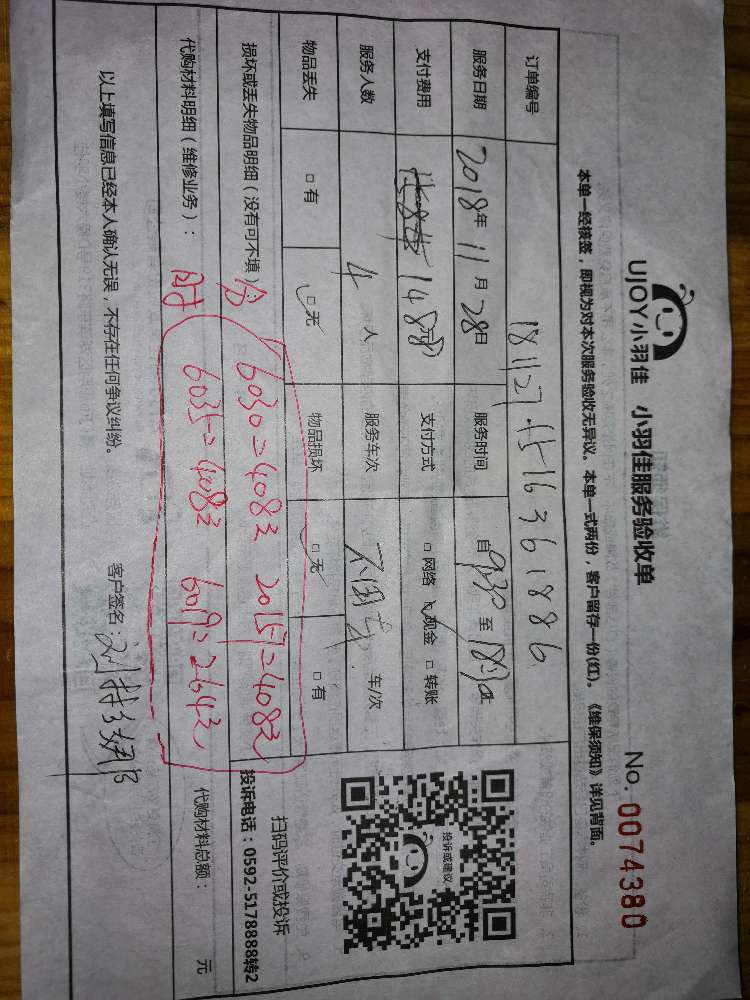 UJOY小羽佳 小羽佳服务验收单
No. 0074380
本单一经核签，即视为对本次服务验收无异议。本单一式两份，客户留存一份(红)。《维保须知》详见背面。
订单编号 18112745163618 86
服务日期 2018年11月28日 服务时间 自930至
支付费用 1488元 支付方式 □网络 □现金 □转账
服务人数 4人 服务车次 车/次
物品丢失 □有 □无 物品损坏 □无 □有
损坏或丢失物品明细（没有可不填）：
6030=408元 2015=408元
代购材料明细（维修业务）：
6035=408元 6019=264元
代购材料总额： 元
扫码评价或投诉
投诉电话：0592-5178888转2
投诉或建议
以上填写信息已经本人确认无误，不存在任何争议纠纷。
客户签名：